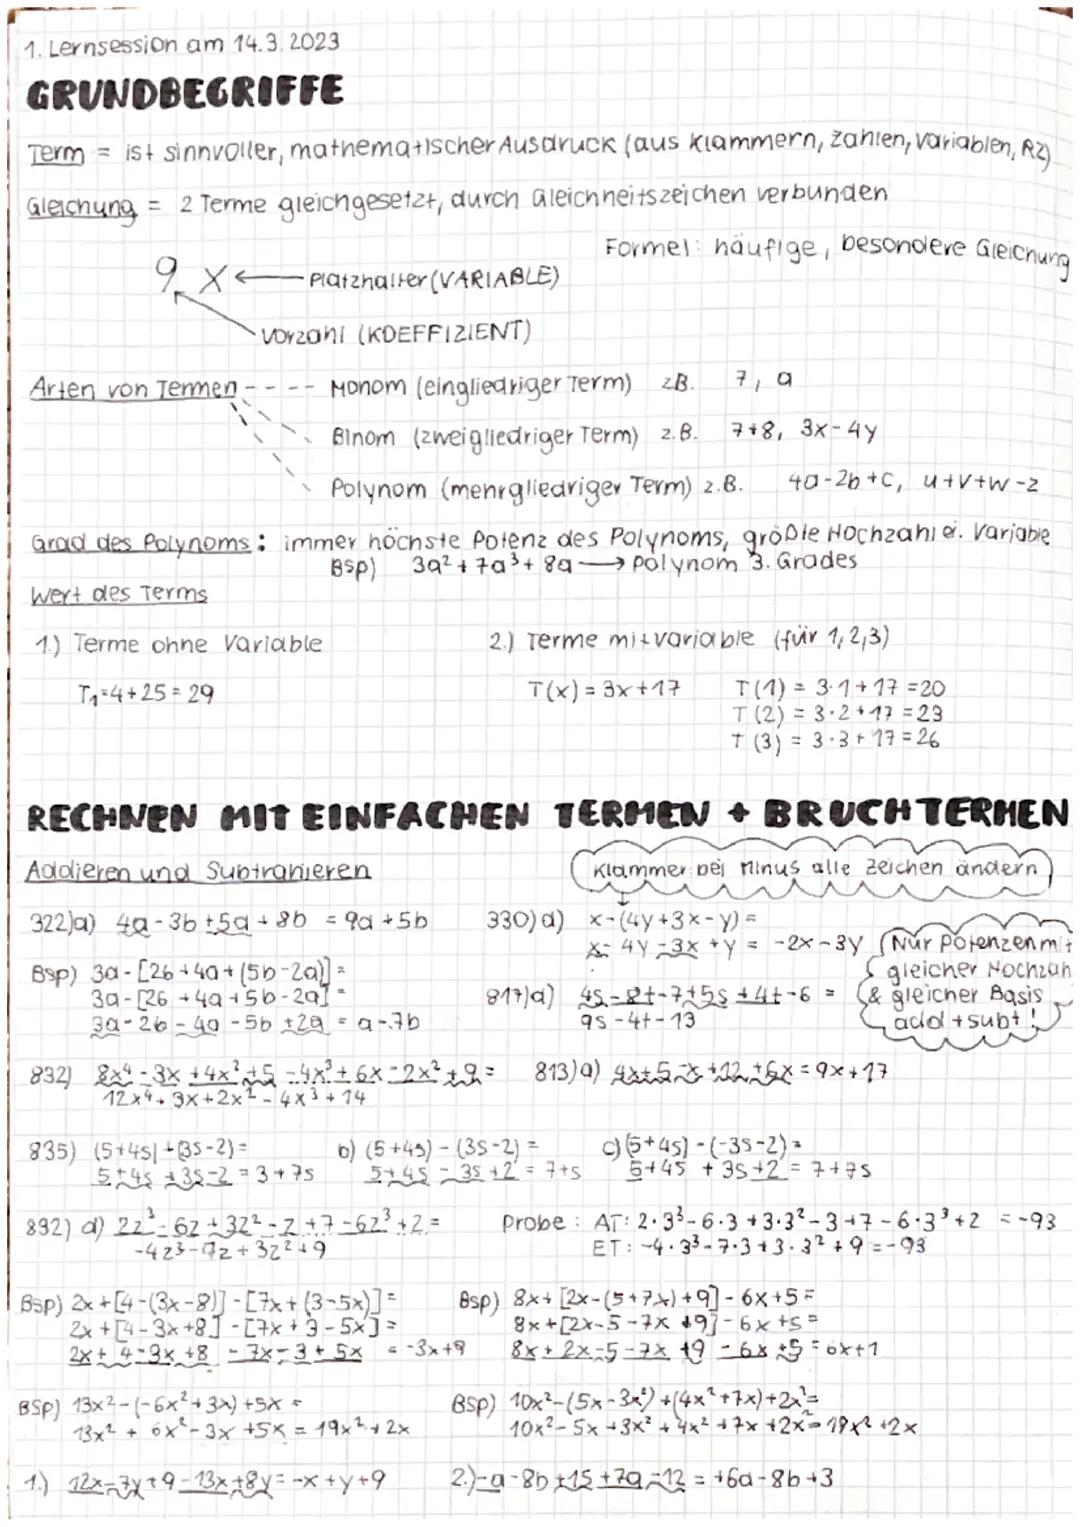 1. Lernsession am 14.3.2023
GRUNDBEGRIFFE
Term = ist sinnvoller, mathematischer Ausdruck (aus Klammern, Zahlen, Variablen, RZ)
Gleichung = 2 Terme gleichgesetzt, durch Gleichheitszeichen verbunden
Formel: häufige, besondere Gleichung
9 x ← Platzhalter (VARIABLE)
Vorzahl (KOEFFIZIENT)
Arten von Termen - - - - Monom (eingliedriger Term) zB. 7, a
Binom (zweigliedriger Term) z.B. 7+8, 3x-4y
Polynom (mehrgliedriger Term) z.B. 4a-2b+c, u+v+w-z
Grad des Polynoms: immer höchste Potenz des Polynoms, größte Hochzahl d. Variable
Bsp) 3a²+7a³+8a → Polynom 3. Grades
Wert des Terms
1.) Terme ohne Variable
2.) Terme mit Variable (für 1,2,3)
T₁=4+25=29
T(x)=3x+17
T(1) = 3·1+17=20
T(2) = 3·2+17=23
T(3) = 3·3+17=26
RECHNEN MIT EINFACHEN TERMEN + BRUCHTERMEN
Addieren und Subtrahieren
Klammer bei Minus alle Zeichen ändern
322)a) 4a-3b+5a+8b = 9a+5b
330)d) x-(4y+3x-y)=
x-4y-3x+y = -2x-3y
Nur Potenzen mit
gleicher Hochzah
& gleicher Basis
add+subt!
Bsp) 3a-[2b+4a+(5b-2a)]=
3a-[2b+4a+5b-2a]=
3a-2b-4a-5b+2a = a-7b
817)a) 4s-8t-7+5s+4t-6 =
9s-4t-13
832) 8x⁴-3x+4x²+5-4x³+6x-2x²+9=
12x⁴+3x+2x²-4x³+14
813)a) 4x+5-x+12+6x=9x+17
835) (5+4s)+(3s-2)=
5+4s+3s-2=3+7s
b) (5+4s)-(3s-2)=
5+4s-3s+2=7+s
c) (5+4s)-(-3s-2)=
5+4s+3s+2=7+7s
892) d) 2z³-6z+3z²-z+7-6z³+2=
-4z³-7z+3z²+9
Probe: AT: 2·3³-6·3+3·3²-3+7-6·3³+2 =-93
ET: -4·3³-7·3+3·3²+9=-93
Bsp) 2x+[4-(3x-8)]-[7x+(3-5x)]=
2x+[4-3x+8]-[7x+3-5x]=
2x+4-3x+8-7x-3+5x = -3x+9
Bsp) 8x+[2x-(5+7x)+9]-6x+5=
8x+[2x-5-7x+9]-6x+5=
8x+2x-5-7x+9-6x+5=6x+1
BSP) 13x²-(-6x²+3x)+5x=
13x²+6x²-3x+5x=19x²+2x
BSP) 10x²-(5x-3x²)+(4x²+7x)+2x²=
10x²-5x+3x²+4x²+7x+2x²=19x²+2x
1.) 12x-7y+9-13x+8y=-x+y+9
2.) -a-8b+15+7a-12=+6a-8b+3